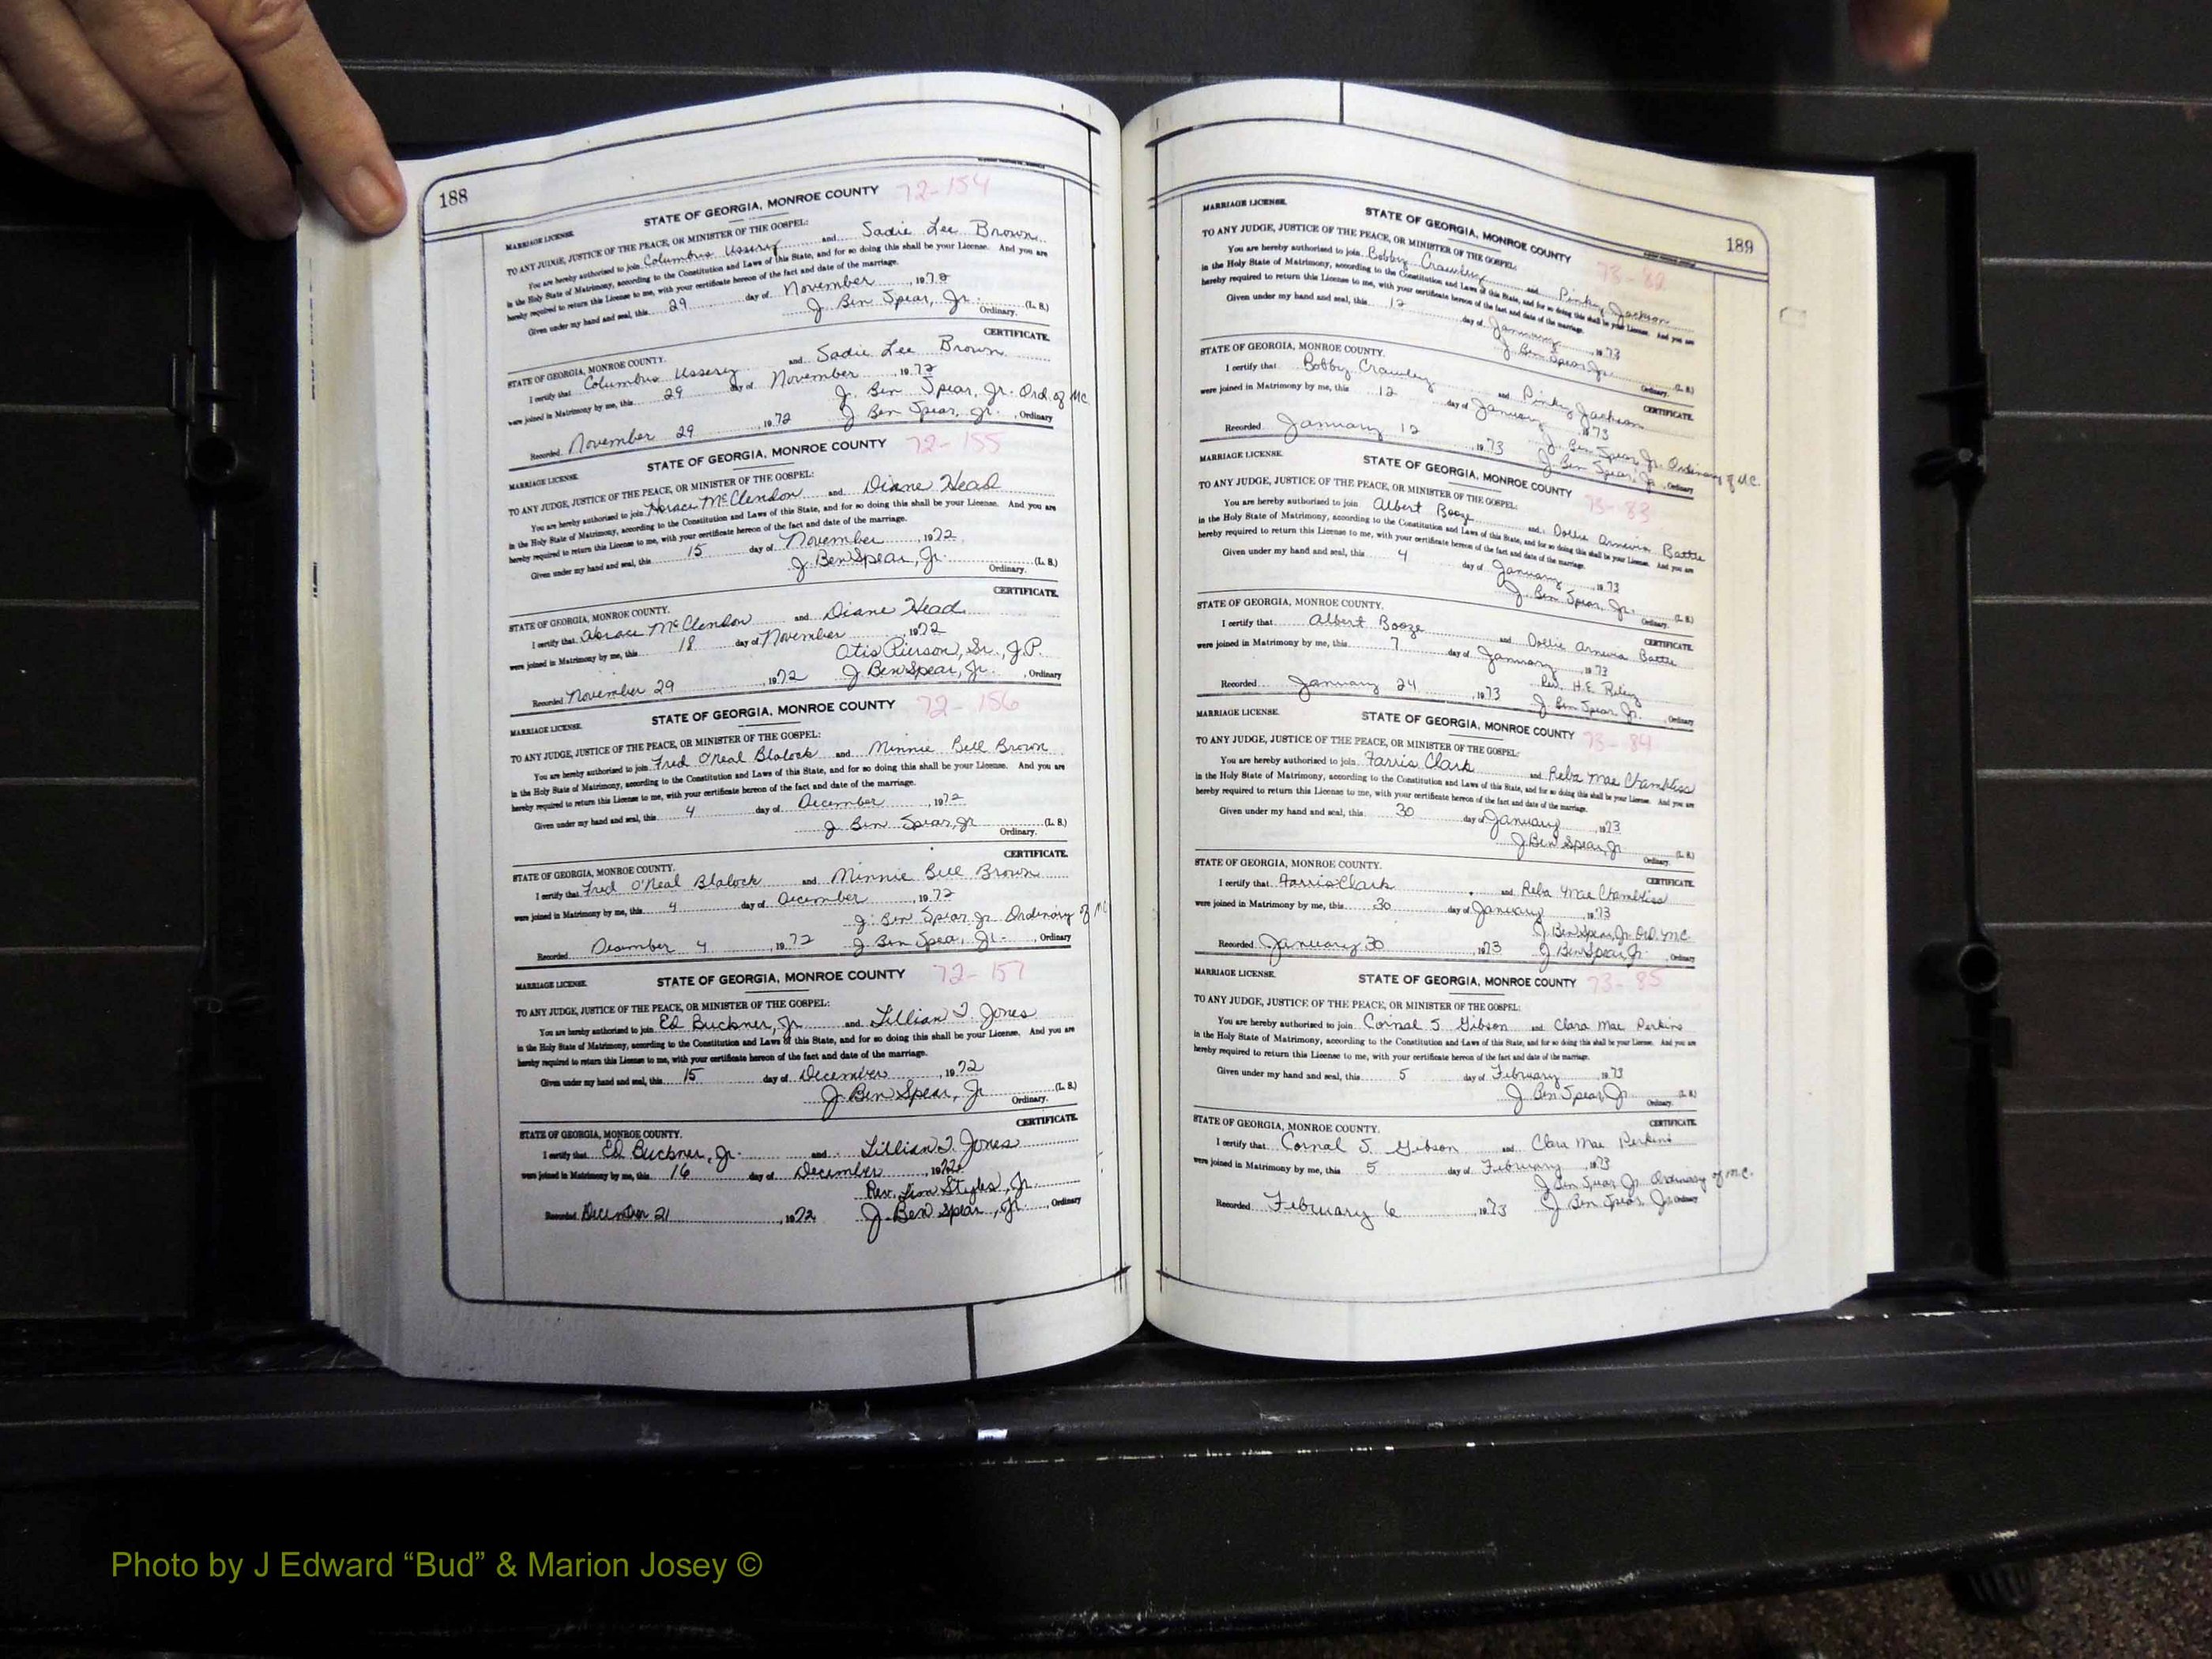 188
STATE OF GEORGIA, MONROE COUNTY 72-154
MARRIAGE LICENSE.
TO ANY JUDGE, JUSTICE OF THE PEACE, OR MINISTER OF THE GOSPEL:
You are hereby authorized to join Columbus Ussery and Sadie Lee Brown
in the Holy State of Matrimony, according to the Constitution and Laws of this State, and for so doing this shall be your License. And you are
hereby required to return this License to me, with your certificate hereon of the fact and date of the marriage.
Given under my hand and seal, this 29 day of November, 1972
J Ben Spear, Jr. (L. S.)
Ordinary.
CERTIFICATE.
STATE OF GEORGIA, MONROE COUNTY.
I certify that Columbus Ussery and Sadie Lee Brown
were joined in Matrimony by me, this 29 day of November, 1972
J. Ben Spear, Jr. Ord. of M.C.
Recorded November 29, 1972 J Ben Spear, Jr., Ordinary
STATE OF GEORGIA, MONROE COUNTY 72-155
MARRIAGE LICENSE.
TO ANY JUDGE, JUSTICE OF THE PEACE, OR MINISTER OF THE GOSPEL:
You are hereby authorized to join Horace McClendon and Diane Head
in the Holy State of Matrimony, according to the Constitution and Laws of this State, and for so doing this shall be your License. And you are
hereby required to return this License to me, with your certificate hereon of the fact and date of the marriage.
Given under my hand and seal, this 15 day of November, 1972
J. Ben Spear, Jr. (L. S.)
Ordinary.
CERTIFICATE.
STATE OF GEORGIA, MONROE COUNTY.
I certify that Horace McClendon and Diane Head
were joined in Matrimony by me, this 18 day of November, 1972
Otis Pierson, Sr., J.P.
Recorded November 29, 1972 J. Ben Spear, Jr., Ordinary
STATE OF GEORGIA, MONROE COUNTY 72-156
MARRIAGE LICENSE.
TO ANY JUDGE, JUSTICE OF THE PEACE, OR MINISTER OF THE GOSPEL:
You are hereby authorized to join Fred O'Neal Blalock and Minnie Bell Brown
in the Holy State of Matrimony, according to the Constitution and Laws of this State, and for so doing this shall be your License. And you are
hereby required to return this License to me, with your certificate hereon of the fact and date of the marriage.
Given under my hand and seal, this 4 day of December, 1972
J Ben Spear, Jr (L. S.)
Ordinary.
CERTIFICATE.
STATE OF GEORGIA, MONROE COUNTY.
I certify that Fred O'Neal Blalock and Minnie Bell Brown
were joined in Matrimony by me, this 4 day of December, 1972
J. Ben Spear Jr Ordinary of MC
Recorded December 4, 1972 J Ben Spear, Jr., Ordinary
STATE OF GEORGIA, MONROE COUNTY 72-157
MARRIAGE LICENSE.
TO ANY JUDGE, JUSTICE OF THE PEACE, OR MINISTER OF THE GOSPEL:
You are hereby authorized to join Ed Buckner, Jr. and Lillian I. Jones
in the Holy State of Matrimony, according to the Constitution and Laws of this State, and for so doing this shall be your License. And you are
hereby required to return this License to me, with your certificate hereon of the fact and date of the marriage.
Given under my hand and seal, this 15 day of December, 1972
J. Ben Spear, Jr (L. S.)
Ordinary.
CERTIFICATE.
STATE OF GEORGIA, MONROE COUNTY.
I certify that Ed Buckner, Jr. and Lillian I. Jones
were joined in Matrimony by me, this 16 day of December, 1972
Rev. Styles, Jr.
Recorded December 21, 1972 J. Ben Spear, Jr., Ordinary
189
MARRIAGE LICENSE.
STATE OF GEORGIA, MONROE COUNTY 73-82
TO ANY JUDGE, JUSTICE OF THE PEACE, OR MINISTER OF THE GOSPEL:
You are hereby authorized to join Bobby Crawley and Pinky Jackson
in the Holy State of Matrimony, according to the Constitution and Laws of this State, and for so doing this shall be your License. And you are
hereby required to return this License to me, with your certificate hereon of the fact and date of the marriage.
Given under my hand and seal, this 12 day of January, 1973
J Ben Spear Jr. (L. S.)
Ordinary.
STATE OF GEORGIA, MONROE COUNTY. CERTIFICATE.
I certify that Bobby Crawley and Pinky Jackson
were joined in Matrimony by me, this 12 day of January, 1973
J. Ben Spear, Jr. Ordinary of M.C.
Recorded January 12, 1973 J. Ben Spear, Jr., Ordinary
MARRIAGE LICENSE.
STATE OF GEORGIA, MONROE COUNTY 73-83
TO ANY JUDGE, JUSTICE OF THE PEACE, OR MINISTER OF THE GOSPEL:
You are hereby authorized to join Albert Booze and Dollie Arnevia Battle
in the Holy State of Matrimony, according to the Constitution and Laws of this State, and for so doing this shall be your License. And you are
hereby required to return this License to me, with your certificate hereon of the fact and date of the marriage.
Given under my hand and seal, this 4 day of January, 1973
J. Ben Spear, Jr. (L. S.)
Ordinary.
STATE OF GEORGIA, MONROE COUNTY. CERTIFICATE.
I certify that Albert Booze and Dollie Arnevia Battle
were joined in Matrimony by me, this 7 day of January, 1973
Rev. H.E. Riley
Recorded January 24, 1973 J Ben Spear Jr., Ordinary
MARRIAGE LICENSE.
STATE OF GEORGIA, MONROE COUNTY 73-84
TO ANY JUDGE, JUSTICE OF THE PEACE, OR MINISTER OF THE GOSPEL:
You are hereby authorized to join Farris Clark and Reba Mae Chambliss
in the Holy State of Matrimony, according to the Constitution and Laws of this State, and for so doing this shall be your License. And you are
hereby required to return this License to me, with your certificate hereon of the fact and date of the marriage.
Given under my hand and seal, this 30 day of January, 1973
J Ben Spear, Jr. (L. S.)
Ordinary.
STATE OF GEORGIA, MONROE COUNTY. CERTIFICATE.
I certify that Farris Clark and Reba Mae Chambliss
were joined in Matrimony by me, this 30 day of January, 1973
J. Ben Spear, Jr. Ord. M.C
Recorded January 30, 1973 J Ben Spear, Jr., Ordinary
MARRIAGE LICENSE.
STATE OF GEORGIA, MONROE COUNTY 73-85
TO ANY JUDGE, JUSTICE OF THE PEACE, OR MINISTER OF THE GOSPEL:
You are hereby authorized to join Cornal S. Gibson and Clara Mae Perkins
in the Holy State of Matrimony, according to the Constitution and Laws of this State, and for so doing this shall be your License. And you are
hereby required to return this License to me, with your certificate hereon of the fact and date of the marriage.
Given under my hand and seal, this 5 day of February, 1973
J Ben Spear, Jr. (L. S.)
Ordinary.
STATE OF GEORGIA, MONROE COUNTY. CERTIFICATE.
I certify that Cornal S. Gibson and Clara Mae Perkins
were joined in Matrimony by me, this 5 day of February, 1973
J Ben Spear Jr. Ordinary of M.C.
Recorded February 6, 1973 J Ben Spear, Jr. Ordinary
Photo by J Edward “Bud” & Marion Josey ©